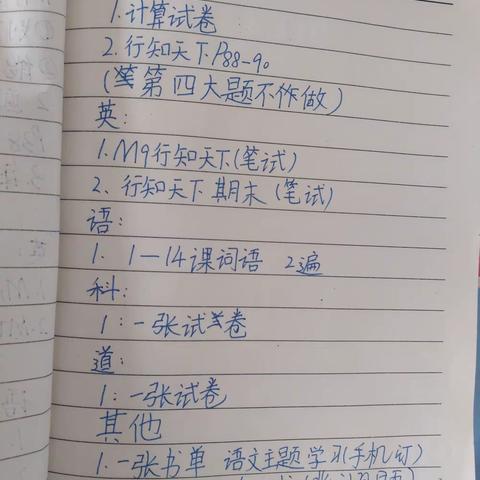 1.计算试卷
2.行知天下P88-90
(第四大题不作做)
英:
1.M9行知天下(笔试)
2、行知天下 期末 (笔试)
语:
1. 1—14课词语 2遍
科:
1:一张试卷
道:
1:一张试卷
其他
1.一张书单 语文主题学习(手机订)